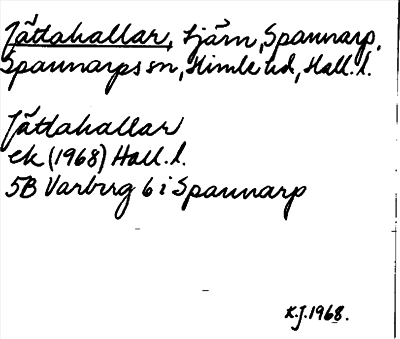 Jättahallar, tjärn, Spannarp,
Spannarps sn, Himle hd, Hall. l.
Jättahallar
ek (1968) Hall. l.
5B Varbrg 6 i Spannarp
K.J. 1968.